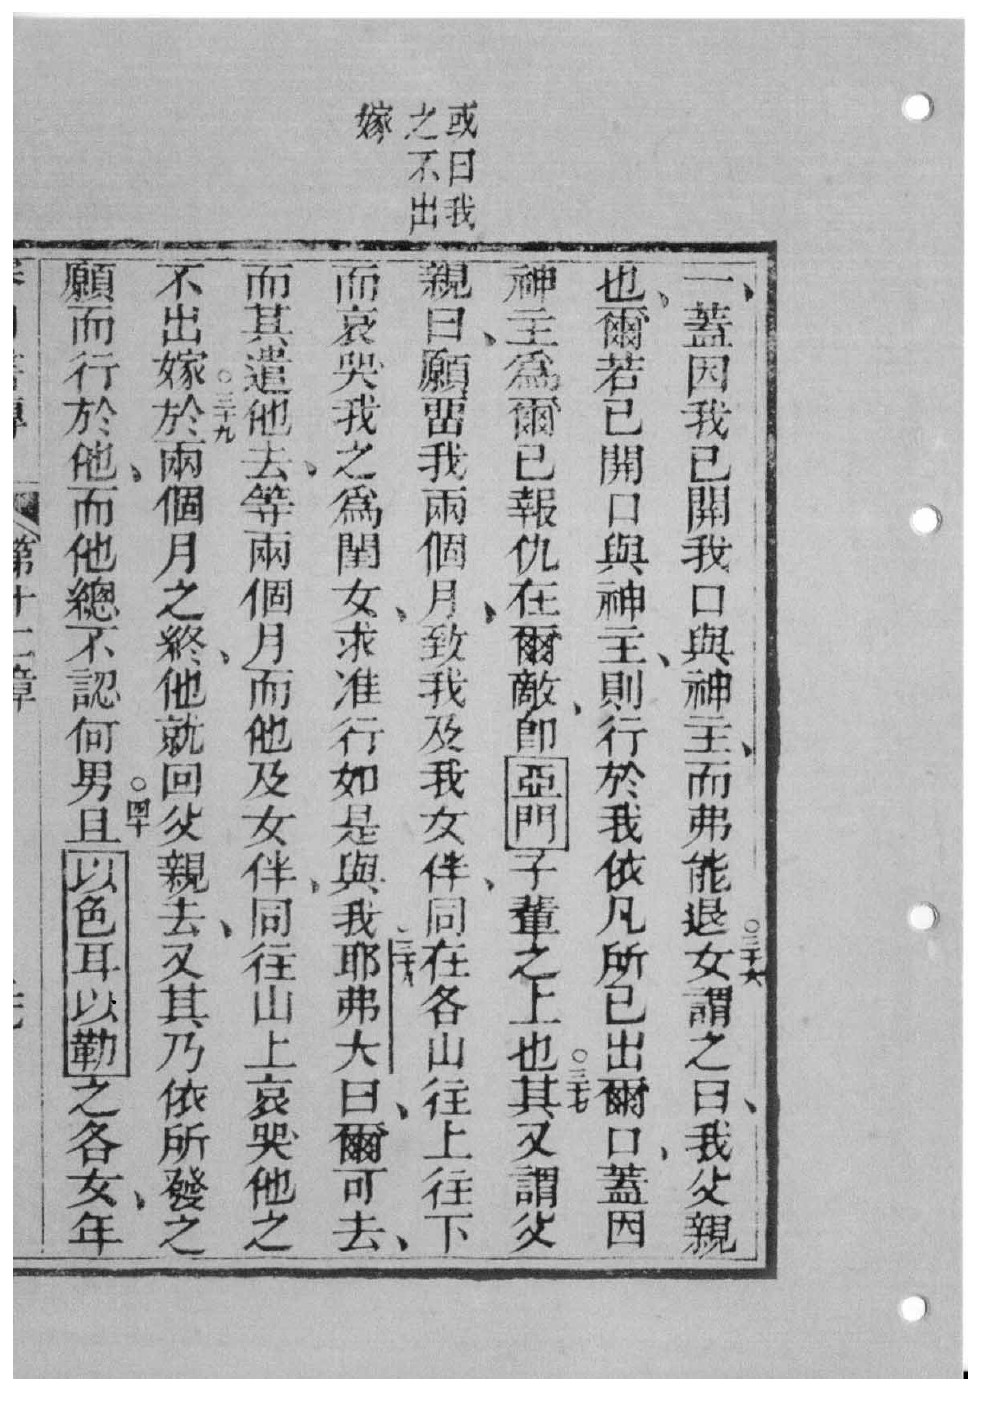 或曰我
之不出
嫁
一、蓋因我已開我口與神主、而弗能退○三十六女謂之曰、我父親
也、爾若已開口與神主、則行於我依凡所已出爾口、蓋因
神主為爾已報仇在爾敵、即亞門子輩之上也○三十七其又謂父
親曰、願畱我兩個月、致我及我女伴、同在各山往上往下
而哀哭我之為閨女、求准行如是與我三十八耶弗大曰、爾可去、
而其遣他去、等兩個月而他及女伴、同往山上哀哭他之
不出嫁○三十九於兩個月之終、他就回父親去、又其乃依所發之
願而行於他、而他總不認何男○四十且以色耳以勒之各女、年
第十一章